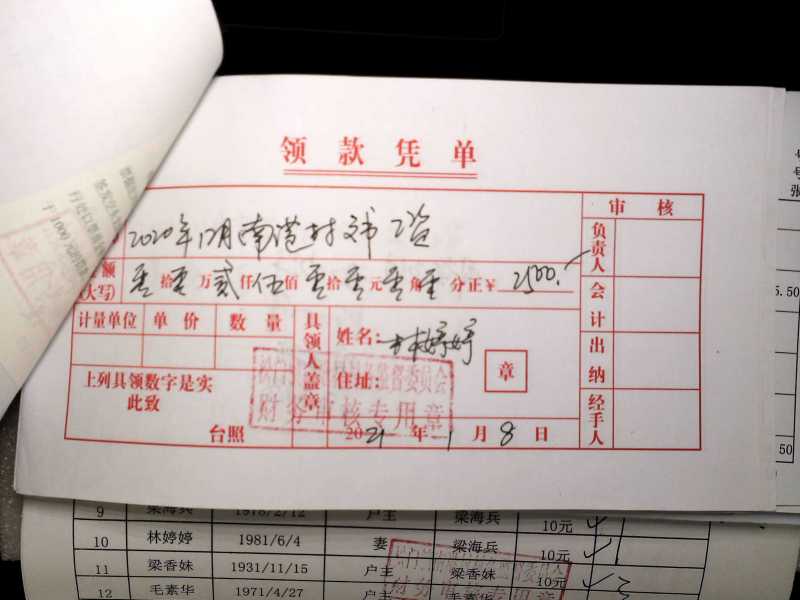 领款凭单
审 核
2020年12月南港村文书工资
负责人
额(大写) 零拾零万贰仟伍佰零拾零元零角零分正¥ 2500.
会计
计量单位 单 价 数 量
具领人盖章
姓名: 林婷婷
住址:
章
出纳
上列具领数字是实
此致
台照
财务审核专用章
2021 年 1 月 8 日
经手人
5.50
50
9 梁海兵 1978/2/12 户主 梁海兵 10元
10 林婷婷 1981/6/4 妻 梁海兵 10元
11 梁香妹 1931/11/15 户主 梁香妹 10元
12 毛素华 1971/4/27 户主
财务审核专用章